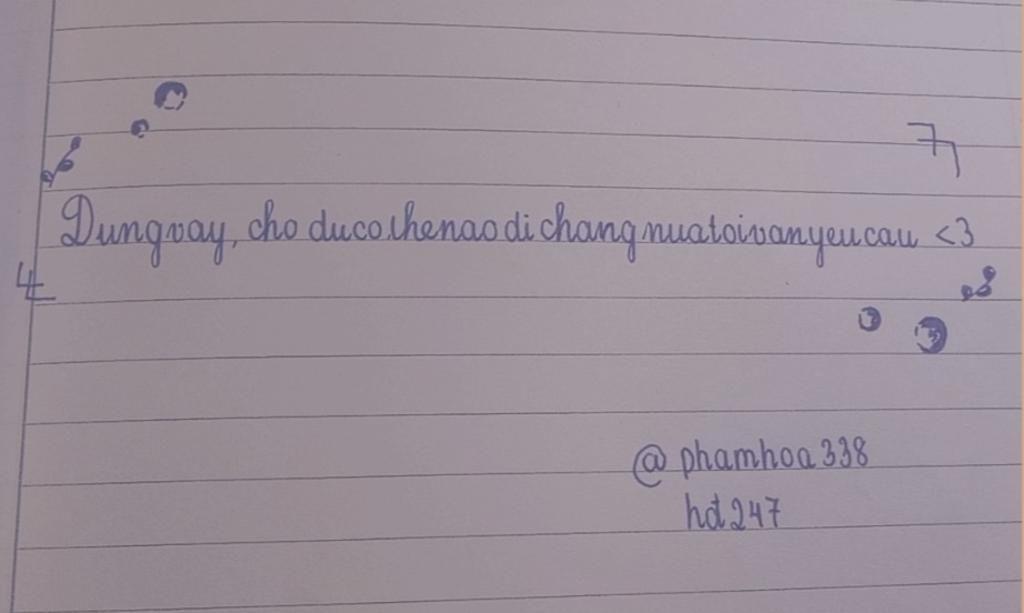 Dungvay, cho ducothenaodichangnuatoivanyeucau <3
@phamhoa338
hdt247